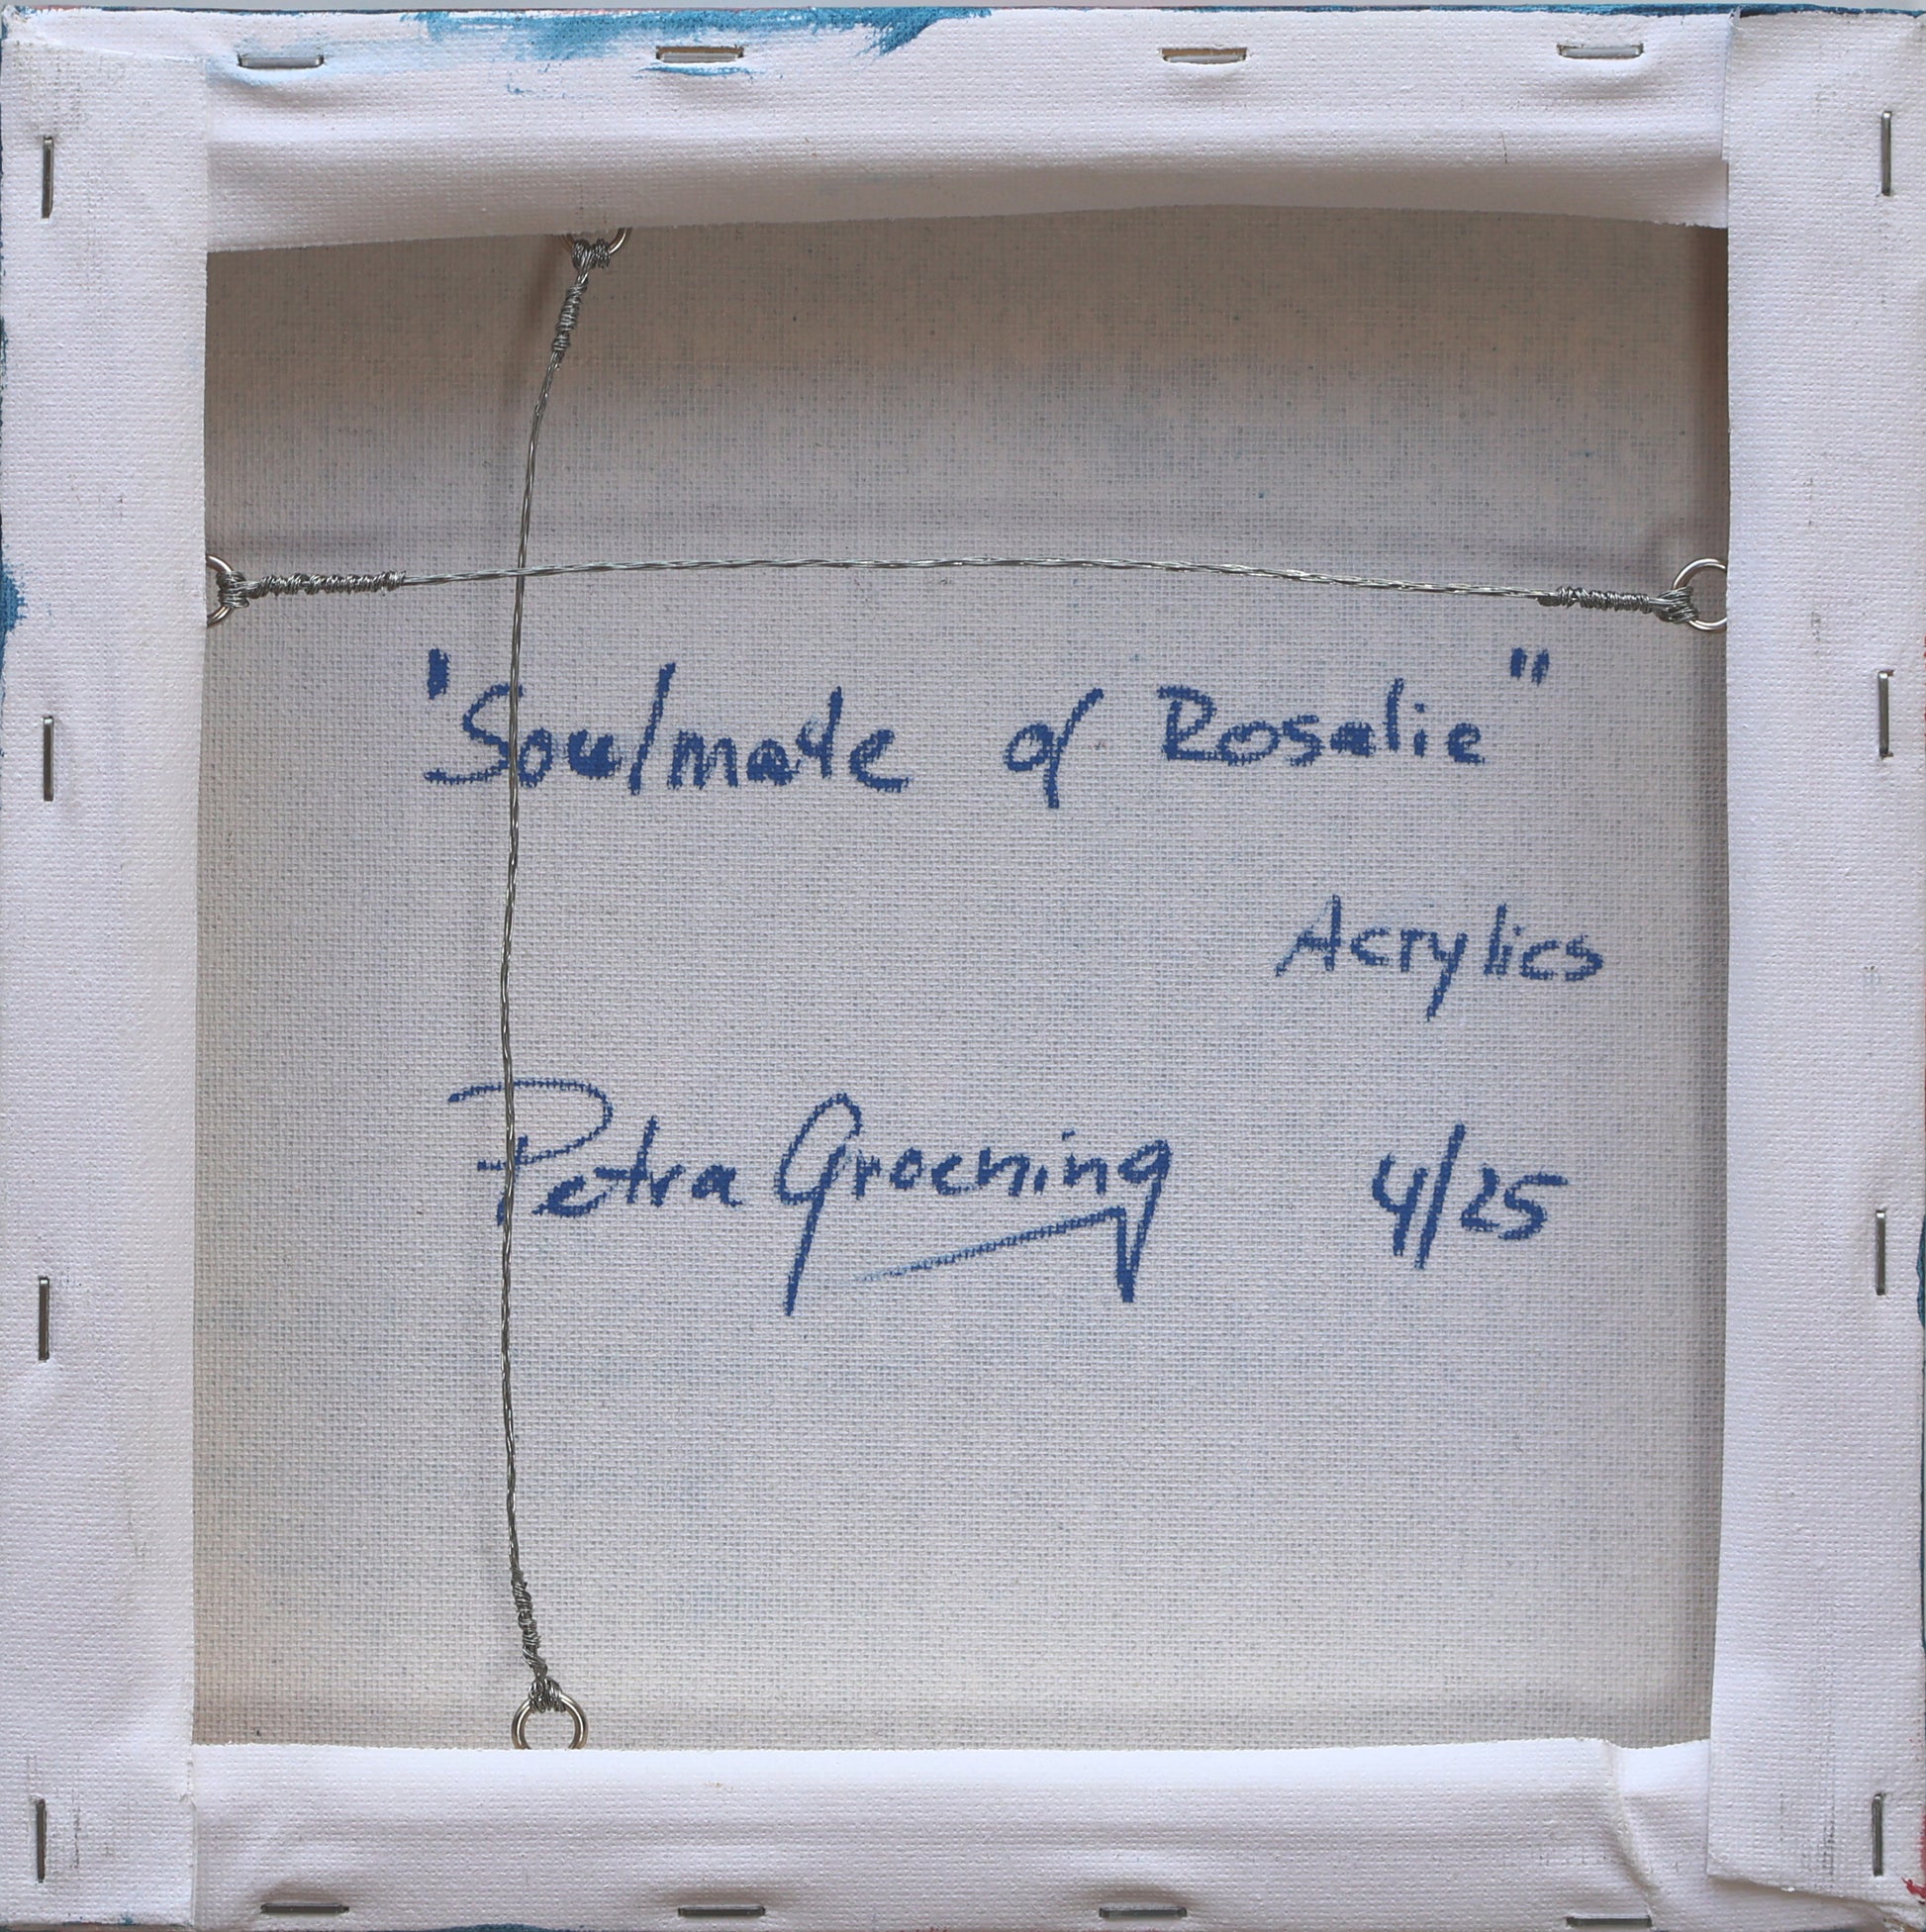 "Soulmate of Rosalie"
Acrylics
Petra Groening 4/25